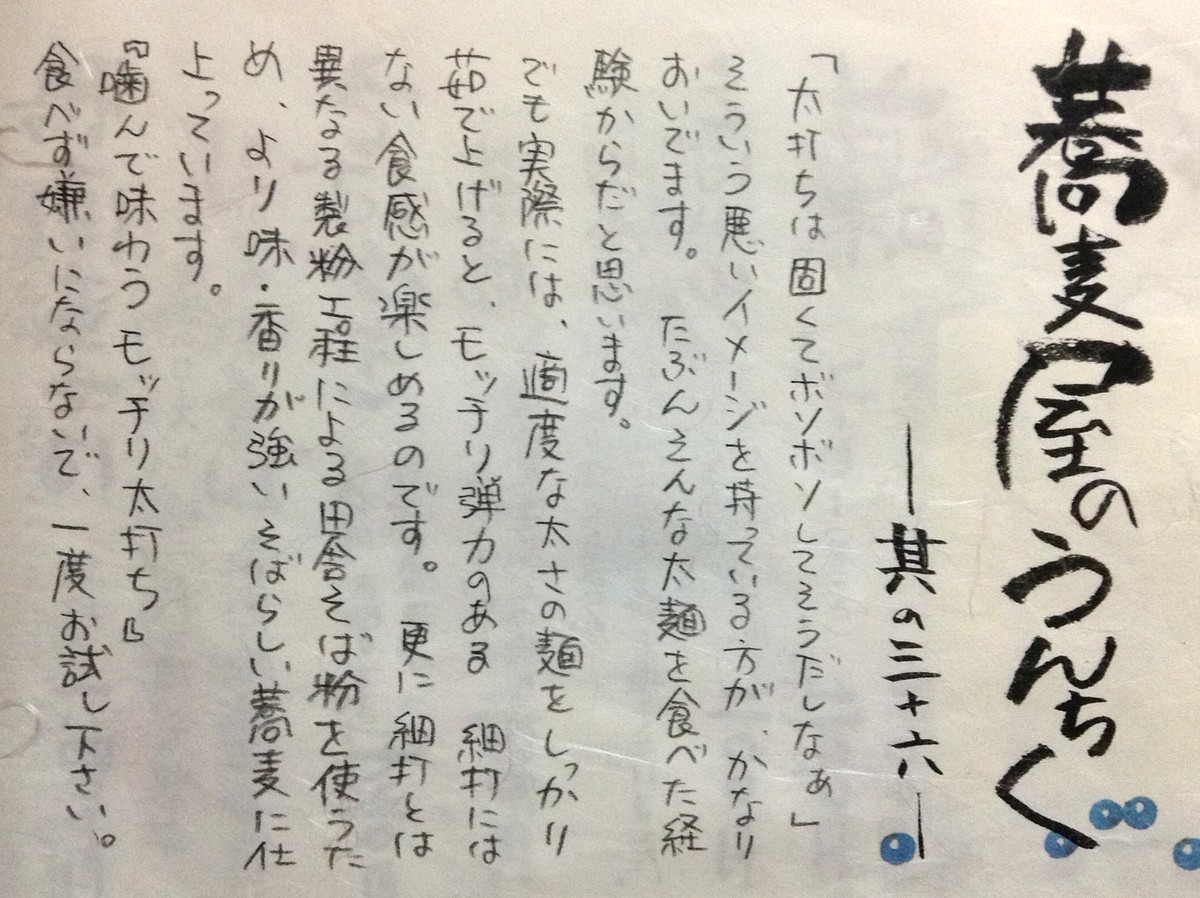 蕎麦屋のうんちく
―其の三十六―
「太打ちは固くてボソボソしてそうだしなぁ」
そういう悪いイメージを持っている方が、かなり
おいでます。たぶんそんな太麺を食べた経
験からだと思います。
でも実際には、適度な太さの麺をしっかり
茹で上げると、モッチリ弾力のある 細打には
ない食感が楽しめるのです。更に細打とは
異なる製粉工程による田舎そば粉を使うた
め、より味・香りが強いそばらしい蕎麦に仕
上っています。
『噛んで味わうモッチリ太打ち』
食べず嫌いにならないで、一度お試し下さい。